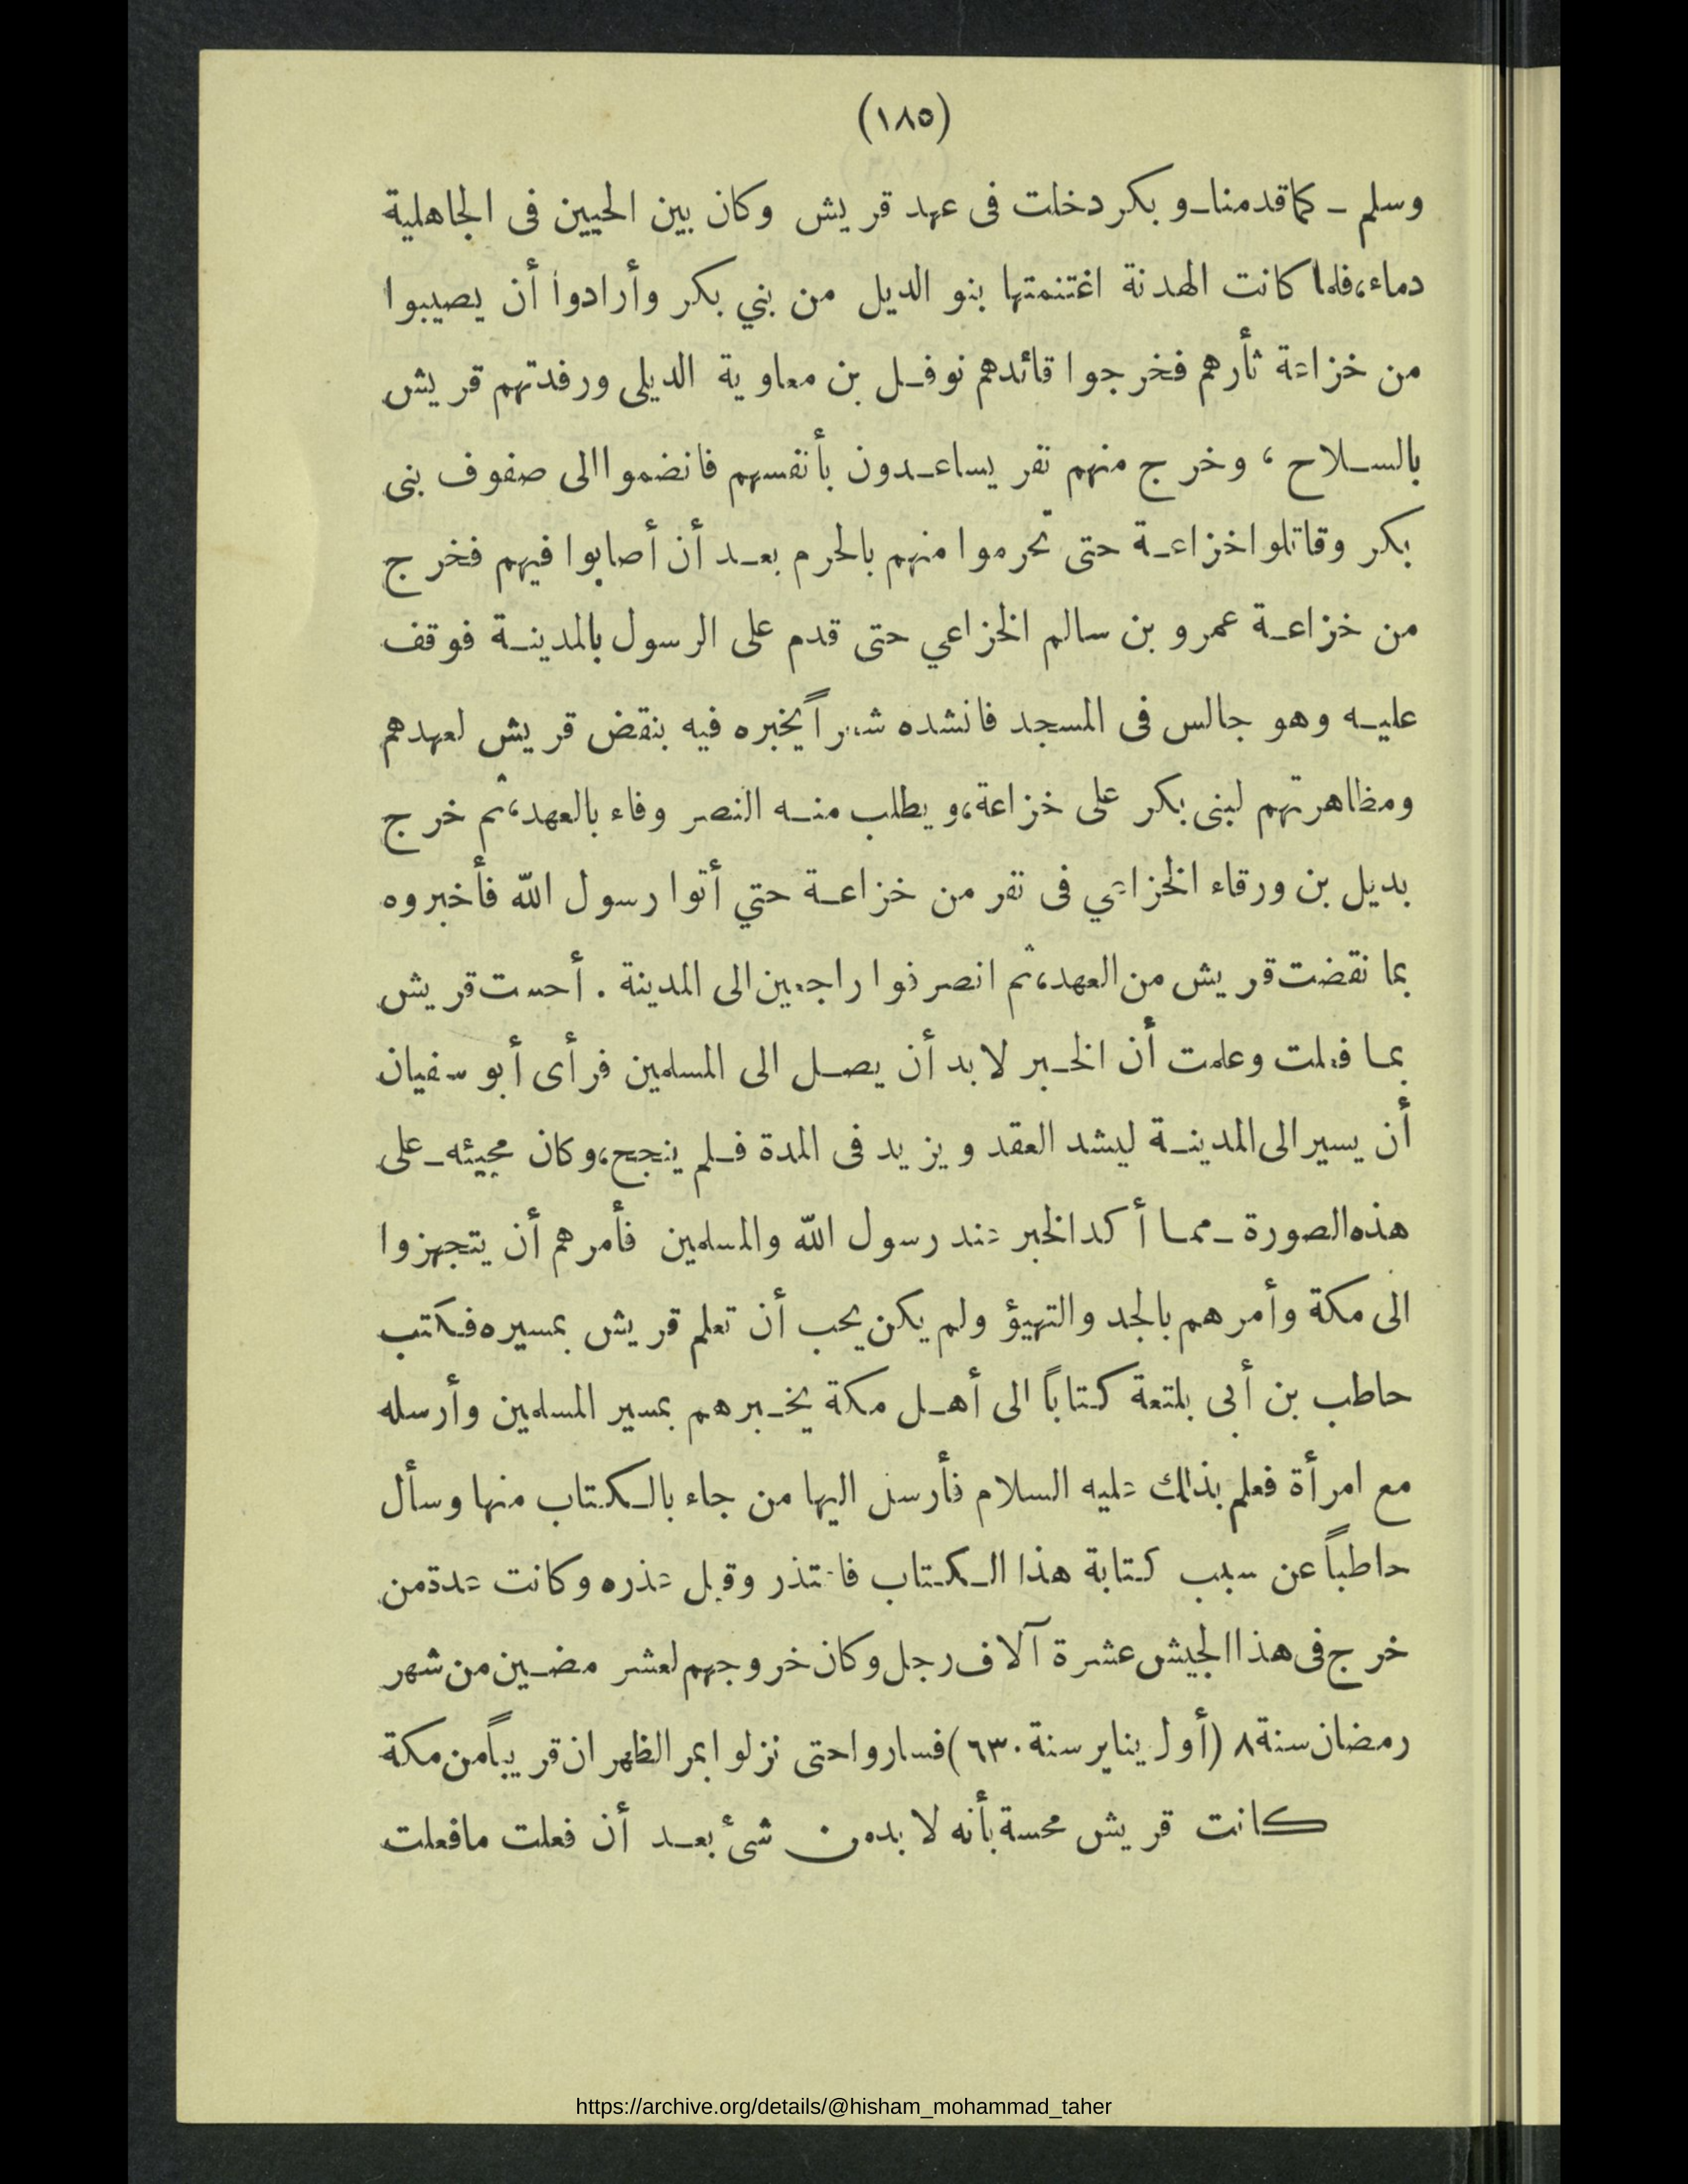 (١٨٥)
وسلم - كما قدمنا - و بكر دخلت فى عهد قريش وكان بين الحيين فى الجاهلية
دماء، فلما كانت الهدنة اغتنمتها بنو الديل من بني بكر وأرادوا أن يصيبوا
من خزاعة ثأرهم فخرجوا قائدهم نوفل بن معاوية الديلى ورفدتهم قريش
بالسلاح ، وخرج منهم نفر يساعدون بأنفسهم فانضموا الى صفوف بنى
بكر وقاتلوا خزاعة حتى تحرموا منهم بالحرم بعد أن أصابوا فيهم فخرج
من خزاعة عمرو بن سالم الخزاعي حتى قدم على الرسول بالمدينة فوقف
عليه وهو جالس فى المسجد فانشده شعراً يخبره فيه بنقض قريش لعهدهم
ومظاهرتهم لبنى بكر على خزاعة، ويطلب منه النصر وفاء بالعهد، ثم خرج
بديل بن ورقاء الخزاعي فى نفر من خزاعة حتي أتوا رسول الله فأخبروه
بما نقضت قريش من العهد، ثم انصرفوا راجعين الى المدينة . أحست قريش
بما فعلت وعلمت أن الخبر لا بد أن يصل الى المسلمين فرأى أبو سفيان
أن يسير الى المدينة ليشد العقد ويزيد فى المدة فلم ينجح، وكان مجيئه - على
هذه الصورة - مما أكد الخبر عند رسول الله والمسلمين فأمرهم أن يتجهزوا
الى مكة وأمرهم بالجد والتهيؤ ولم يكن يحب أن تعلم قريش بمسيره فكتب
حاطب بن أبى بلتعة كتاباً الى أهل مكة يخبرهم بمسير المسلمين وأرسله
مع امرأة فعلم بذلك عليه السلام فأرسل اليها من جاء بالكتاب منها وسأل
حاطباً عن سبب كتابة هذا الكتاب فاعتذر وقبل عذره وكانت عدة من
خرج فى هذا الجيش عشرة آلاف رجل وكان خروجهم لعشر مضين من شهر
رمضان سنة ٨ (أول يناير سنة ٦٣٠) فساروا حتى نزلوا بمر الظهران قريباً من مكة
كانت قريش محسة بأنه لا بد من شئ بعد أن فعلت ما فعلت
https://archive.org/details/@hisham_mohammad_taher